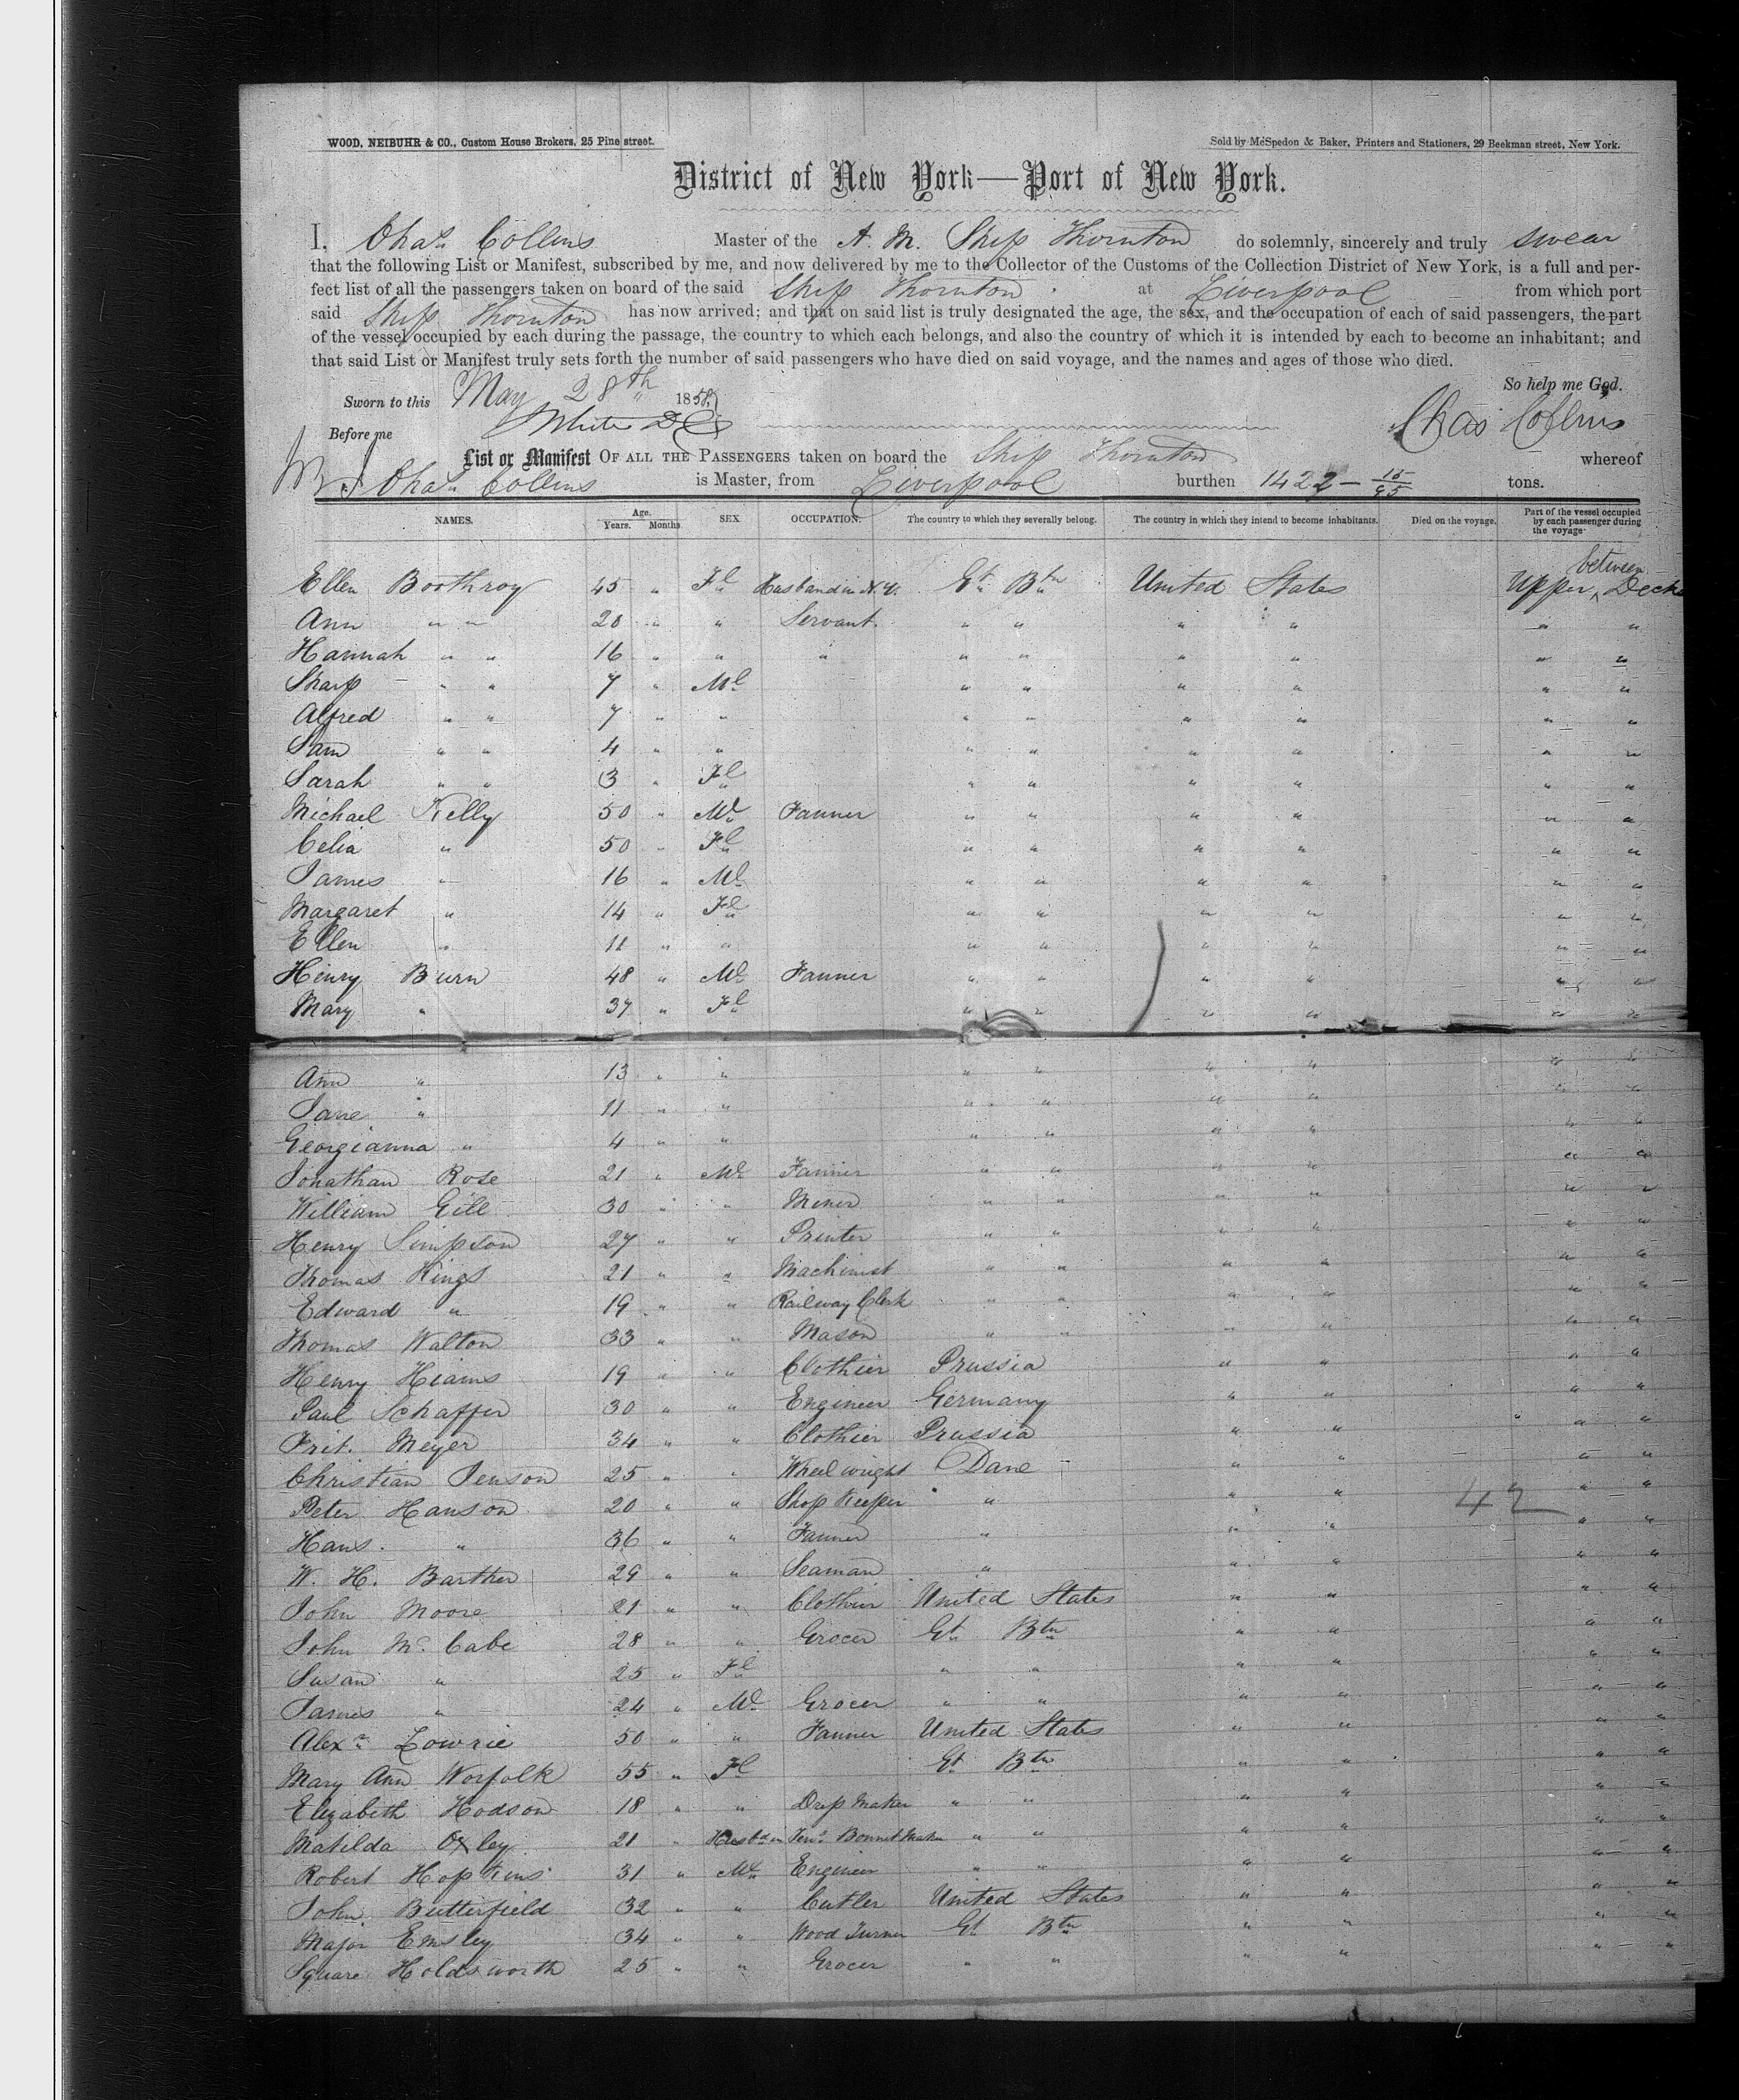 WOOD, NEIBUHR & CO., Custom House Brokers, 25 Pine street.
Sold by McSpedon & Baker, Printers and Stationers, 29 Beekman street, New York.
District of New York—Port of New York.
I, Chas. Collins Master of the A. M. Ship Thornton do solemnly, sincerely and truly swear
that the following List or Manifest, subscribed by me, and now delivered by me to the Collector of the Customs of the Collection District of New York, is a full and per-
fect list of all the passengers taken on board of the said Ship Thornton at Liverpool from which port
said Ship Thornton has now arrived; and that on said list is truly designated the age, the sex, and the occupation of each of said passengers, the part
of the vessel occupied by each during the passage, the country to which each belongs, and also the country of which it is intended by each to become an inhabitant; and
that said List or Manifest truly sets forth the number of said passengers who have died on said voyage, and the names and ages of those who died.
So help me God.
Sworn to this May 28th 1858.
Chas Collins
Before me White
List or Manifest OF ALL THE PASSENGERS taken on board the Ship Thornton whereof
Chas. Collins is Master, from Liverpool burthen 1422 - 15/95 tons.
NAMES. Age. Years. Months. SEX OCCUPATION. The country to which they severally belong. The country in which they intend to become inhabitants. Died on the voyage. Part of the vessel occupied by each passenger during the voyage
Ellen Boothroy 45 " Fl Husband in N.Y. Gt Btn United States Upper between Decks
Ann " " 20 " " Servant. " " " " " "
Hannah " " 16 " " " " " " " " "
Sharp " " 7 " Ml " " " " " "
Alfred " " 7 " " " " " " " "
Sam " " 4 " " " " " " " "
Sarah " " 3 " Fl " " " " " "
Michael Kelly 50 " Ml Farmer " " " " " "
Celia " 50 " Fl " " " " " "
James " 16 " Ml " " " " " "
Margaret " 14 " Fl " " " " " "
Ellen " 11 " " " " " " " "
Henry Burn 48 " Ml Farmer " " " " " "
Mary " 37 " Fl " " " " " "
Ann " 13 " " " " " " " "
Jane " 11 " " " " " " " "
Georgianna " 4 " " " " " " " "
Jonathan Rose 21 " Ml Farmer " " " " " "
William Gill 30 " " Miner " " " " " "
Henry Simpson 27 " " Printer " " " " " "
Thomas Kings 21 " " Machinist " " " " " "
Edward " 19 " " Railway Clerk " " " " " "
Thomas Walton 33 " " Mason " " " " " "
Henry Hiams 19 " " Clothier Prussia " " " "
Paul Schaffer 30 " " Engineer Germany " " " "
Frit. Meyer 34 " " Clothier Prussia " " " "
Christian Jenson 25 " " Wheelwright Dane " " " "
Peter Hanson 20 " " Shop Keeper " " " " "
42
Hans. " 36 " " Farmer " " " " "
W. H. Barther 29 " " Seaman " " " " "
John Moore 21 " " Clothier United States " " " "
John McCabe 28 " " Grocer Gt Btn " " " "
Susan " 25 " Fl " " " " " "
James " 24 " Ml Grocer " " " " " "
Alexr Lowrie 50 " " Farmer United States " " " "
Mary Ann Worfolk 55 " Fl Gt Btn " " " "
Elizabeth Hodson 18 " " Dress Maker " " " " " "
Matilda Oxley 21 " Husbd in Bonnet Maker " " " " " "
Robert Hopkins 31 " Ml Engineer " " " " " "
John Butterfield 32 " " Cutler United States " " " "
Major Emsley 34 " " Wood Turner Gt Btn " " " "
Square Holdsworth 25 " " Grocer " " " " " "